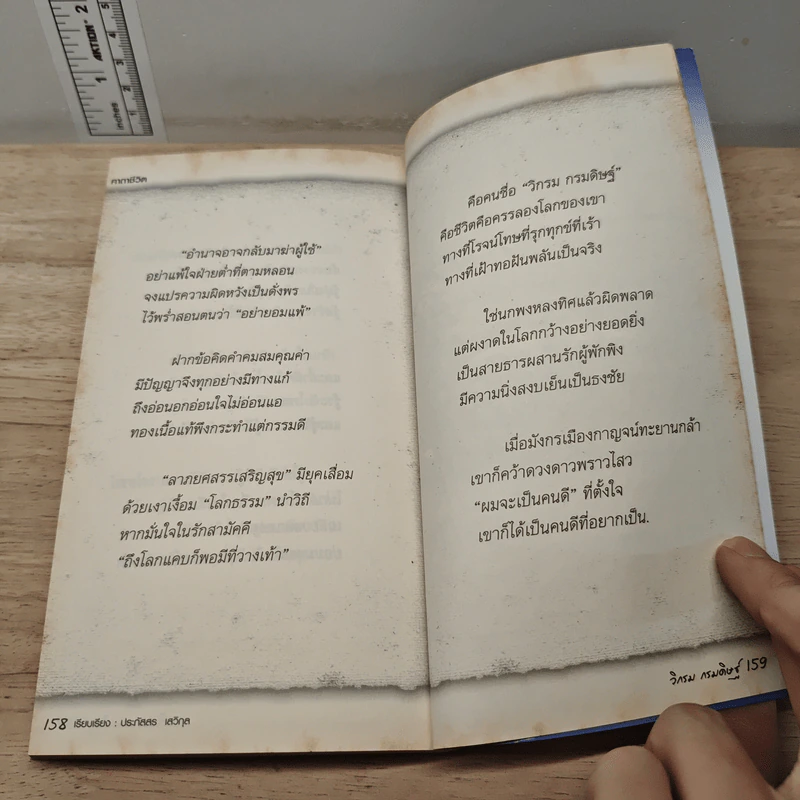 inches
1
2
AKTION
1
2
3
4
5
คาถาชีวิต
"อำนาจอาจกลับมาฆ่าผู้ใช้"
อย่าแพ้ใจฝ่ายต่ำที่ตามหลอน
จงแปรความผิดหวังเป็นดั่งพร
ไว้พร่ำสอนตนว่า "อย่ายอมแพ้"
ฝากข้อคิดคำคมสมคุณค่า
มีปัญญาจึงทุกอย่างมีทางแก้
ถึงอ่อนอกอ่อนใจไม่อ่อนแอ
ทองเนื้อแท้พึงกระทำแต่กรรมดี
"ลาภยศสรรเสริญสุข" มียุคเสื่อม
ด้วยเงาเงื้อม "โลกธรรม" นำวิถี
หากมั่นใจในรักสามัคคี
"ถึงโลกแคบก็พอมีที่วางเท้า"
158 เรียบเรียง : ประภัสสร เสวิกุล
คือคนชื่อ "วิกรม กรมดิษฐ์"
คือชีวิตคือครรลองโลกของเขา
ทางที่โรจน์โทษที่รุกทุกข์ที่เร้า
ทางที่เฝ้าทอฝันพลันเป็นจริง
ใช่นกพงหลงทิศแล้วผิดพลาด
แต่ผงาดในโลกกว้างอย่างยอดยิ่ง
เป็นสายธารผสานรักผู้พักพิง
มีความนิ่งสงบเย็นเป็นธงชัย
เมื่อมังกรเมืองกาญจน์ทะยานกล้า
เขาก็คว้าดวงดาวพราวไสว
"ผมจะเป็นคนดี" ที่ตั้งใจ
เขาก็ได้เป็นคนดีที่อยากเป็น.
วิกรม กรมดิษฐ์ 159